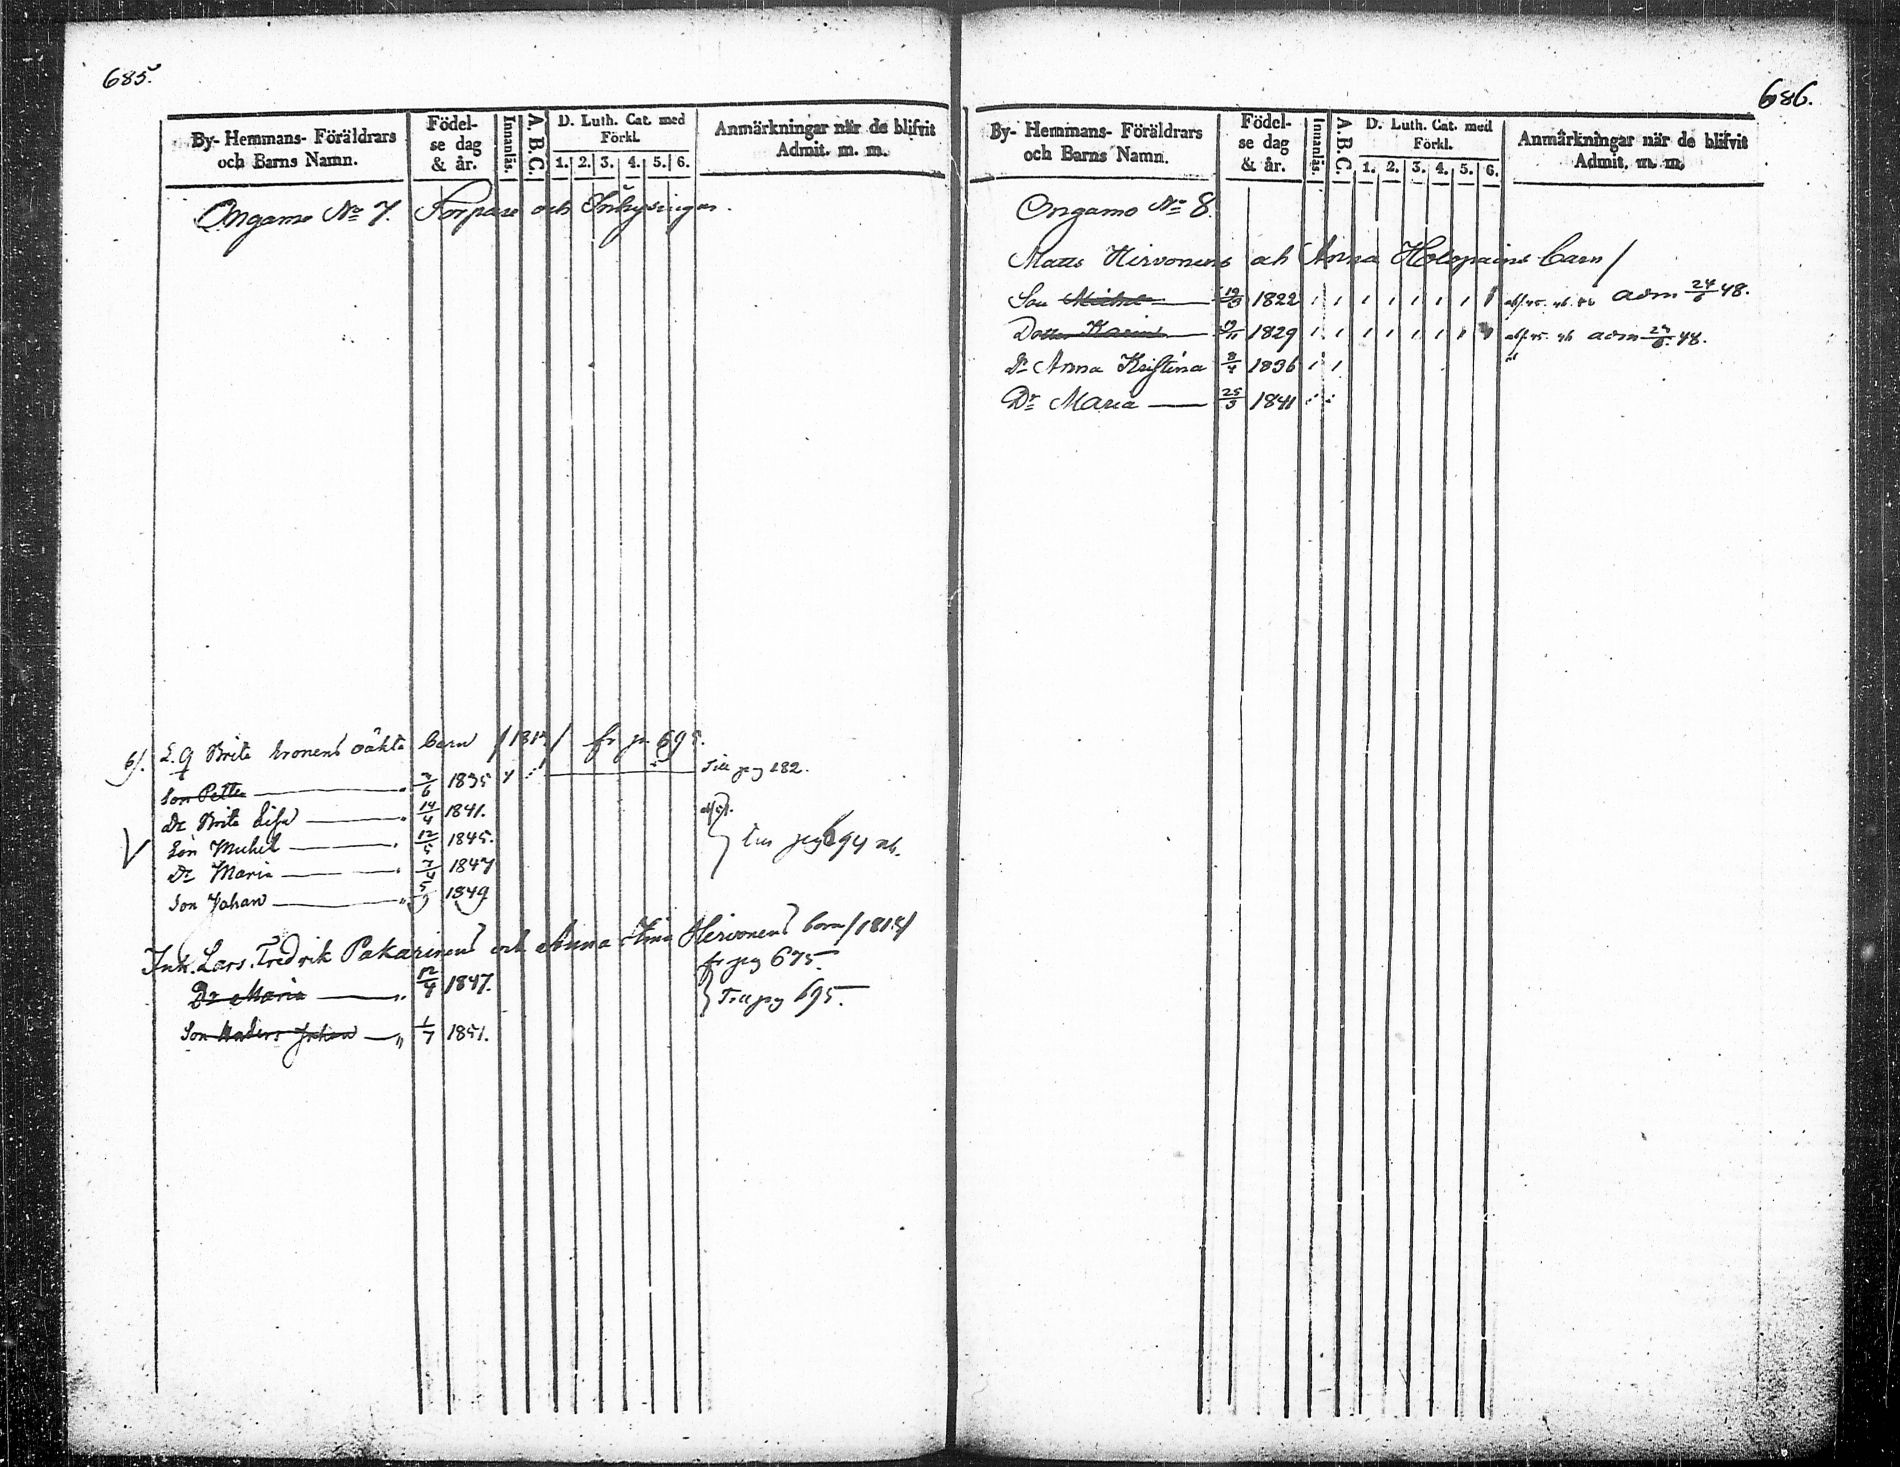 685.
By- Hemmans- Föräldrars och Barns Namn.
Födelse dag & år.
Innanläs.
A. B. C.
D. Luth. Cat. med Förkl.
1. 2. 3. 4. 5. 6.
Anmärkningar när de blifvit Admit. m. m.
Ongamo No 7. Torpare och Inhysingar.
6/. Brita oäkta barn fr pag 695.
Son Petter 1835 Till pag 282.
Dr Brita Lisa 14/4 1841.
Son Michel 12/5 1845. pag 694
Dr Maria 7/4 1847
Son Johan 5/9 1849
Inh. Lars Fredrik Pakarinens och Anna Hirvonens barn
fr pag 675.
Dr Maria 12/4 1847. Till pag 695.
Son Anders Johan 1/7 1851.
686.
By- Hemmans- Föräldrars och Barns Namn.
Födelse dag & år.
Innanläs.
A. B. C.
D. Luth. Cat. med Förkl.
1. 2. 3. 4. 5. 6.
Anmärkningar när de blifvit Admit. m. m.
Ongamo No 8.
Matts Hirvonens och Anna Holopains barn/
Son Michel 1822 adm 24/6 48.
Dotter Karin 1829 adm 24/6 48.
Dr Anna Kristina 8/4 1836
Dr Maria 25/3 1841